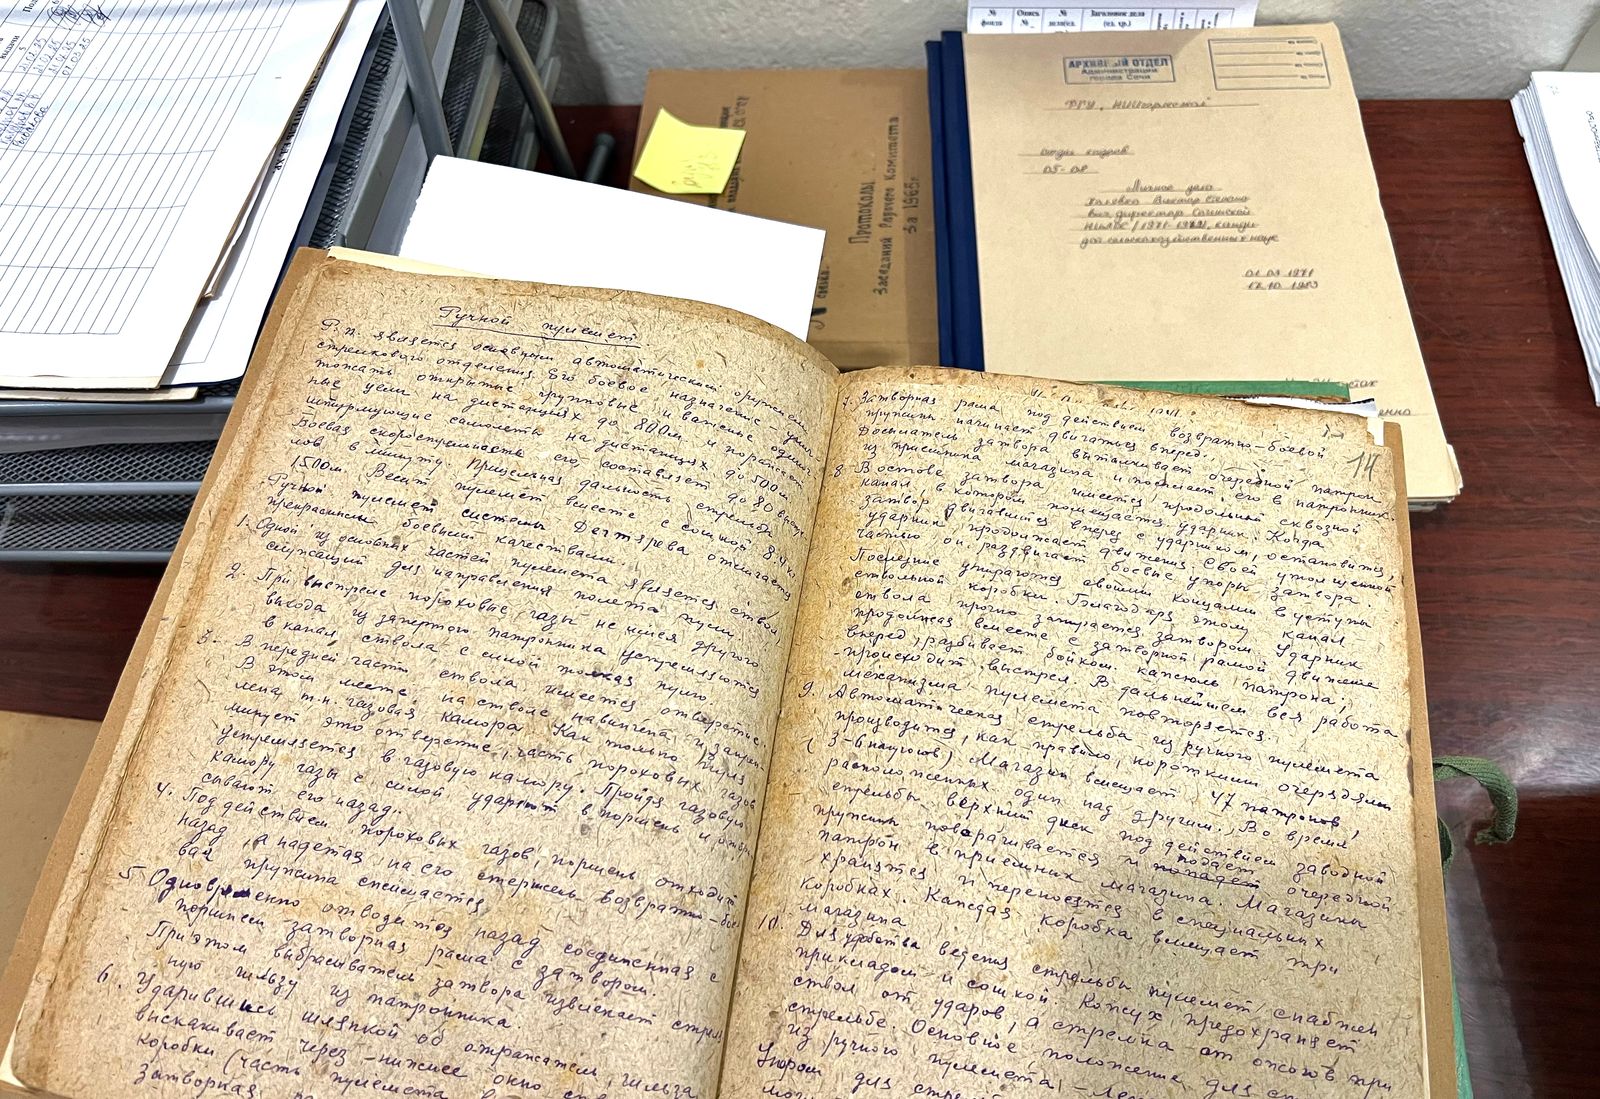 № фонда
Опись №
№ дела(ед. хр.)
Заголовок дела
АРХИВНЫЙ ОТДЕЛ
Администрации
города Сочи
отдел кадров
05-08
Личное дело
директор Сочинской
/1971-
дат сельскохозяйственных наук
01 03 1971
17.10 1983
Протоколы
Заседаний Рабочего Комитета
за 1965г
Ручной пулемет.
Р.п. является основным автоматическим оружием
стрелкового отделения. Его боевое назначение - унич-
тожать открытые групповые и важные одиноч-
ные цели на дистанциях до 800м. и поражать
штурмующие самолеты на дистанциях до 500м.
Боевая скорострельность его составляет до 80 выстре-
лов в минуту. Прицельная дальность стрельбы
1500м. Весит пулемет вместе с сошкой 8.4 кг
Ручной пулемет системы Дегтярева отличается
прекрасными боевыми качествами.
1. Одной из основных частей пулемета является ствол,
служащий для направления полета пули.
2. При выстреле пороховые газы не имея другого
выхода из запертого патронника устремляются
в канал ствола с силой толкая пулю.
3. В передней части ствола имеется отверстие.
В этом месте на стволе навинчена и закреп-
лена т.н. газовая камора. Как только пуля
минует это отверстие, часть пороховых газов
устремляется в газовую камору. Пройдя газовую
камору газы с силой ударяют в поршень и отбра-
сывают его назад.
4. Под действием пороховых газов, поршень отходит
назад, а надетая на его стержень возвратно-бое-
вая пружина сжимается
5. Одновременно отводится назад соединенная с
поршнем затворная рама с затвором.
При этом выбрасыватель затвора извлекает стреля-
ную гильзу из патронника.
6. Ударившись шляпкой об отражатель, гильза
выскакивает через нижнее окно
коробки (часть пулемета в
затворная
14
7. Затворная рама под действием возвратно-боевой
пружины начинает двигаться вперед.
Досылатель затвора выталкивает очередной патрон
из приемника магазина и посылает его в патронник.
8. В остове затвора имеется продольный сквозной
канал, в котором помещается ударник. Когда
затвор двигавшийся вперед с ударником, остановится,
ударник продолжает движение. Своей утолщенной
частью он раздвигает боевые упоры затвора.
Последние упираются своими концами в уступы
ствольной коробки. Благодаря этому канал
ствола прочно запирается затвором. Ударник
продолжая вместе с затворной рамой движение
вперед, разбивает бойком капсюль патрона;
происходит выстрел. В дальнейшем вся работа
механизма пулемета повторяется.
9. Автоматическая стрельба из ручного пулемета
производится, как правило, короткими очередями
( 3-6 патронов) Магазин вмещает 47 патронов,
расположенных один над другим. Во время
стрельбы верхний диск под действием заводной
пружины поворачивается и подает очередной
патрон в приемник магазина. Магазины
хранятся и переносятся в специальных
коробках. Каждая коробка вмещает три
магазина.
10. Для удобства ведения стрельбы пулемет снабжен
прикладом и сошкой. Кожух предохраняет
ствол от ударов, а стрелка от ожогов при
стрельбе. Основное положение для
из ручного пулемета
Упором для